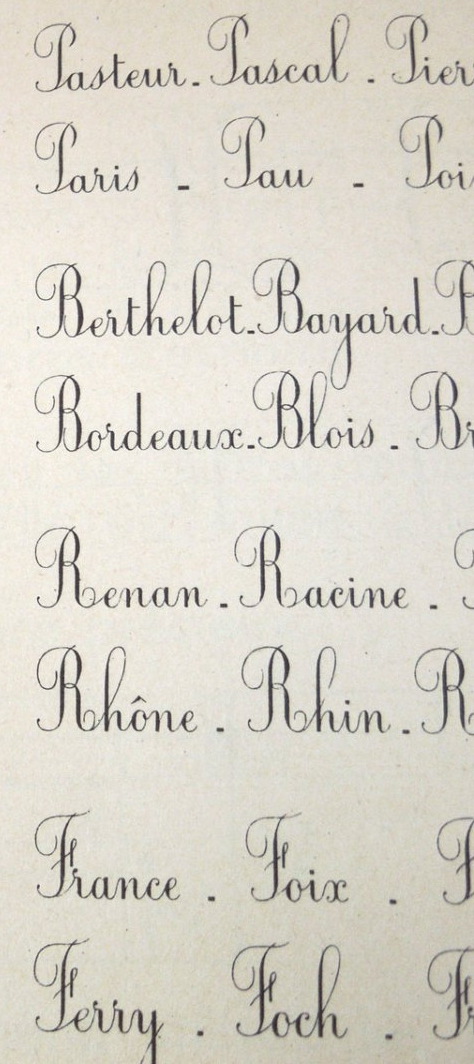 Pasteur - Pascal -
Paris - Pau -
Berthelot - Bayard -
Bordeaux - Blois -
Renan - Racine -
Rhône - Rhin -
France - Foix -
Ferry - Foch -